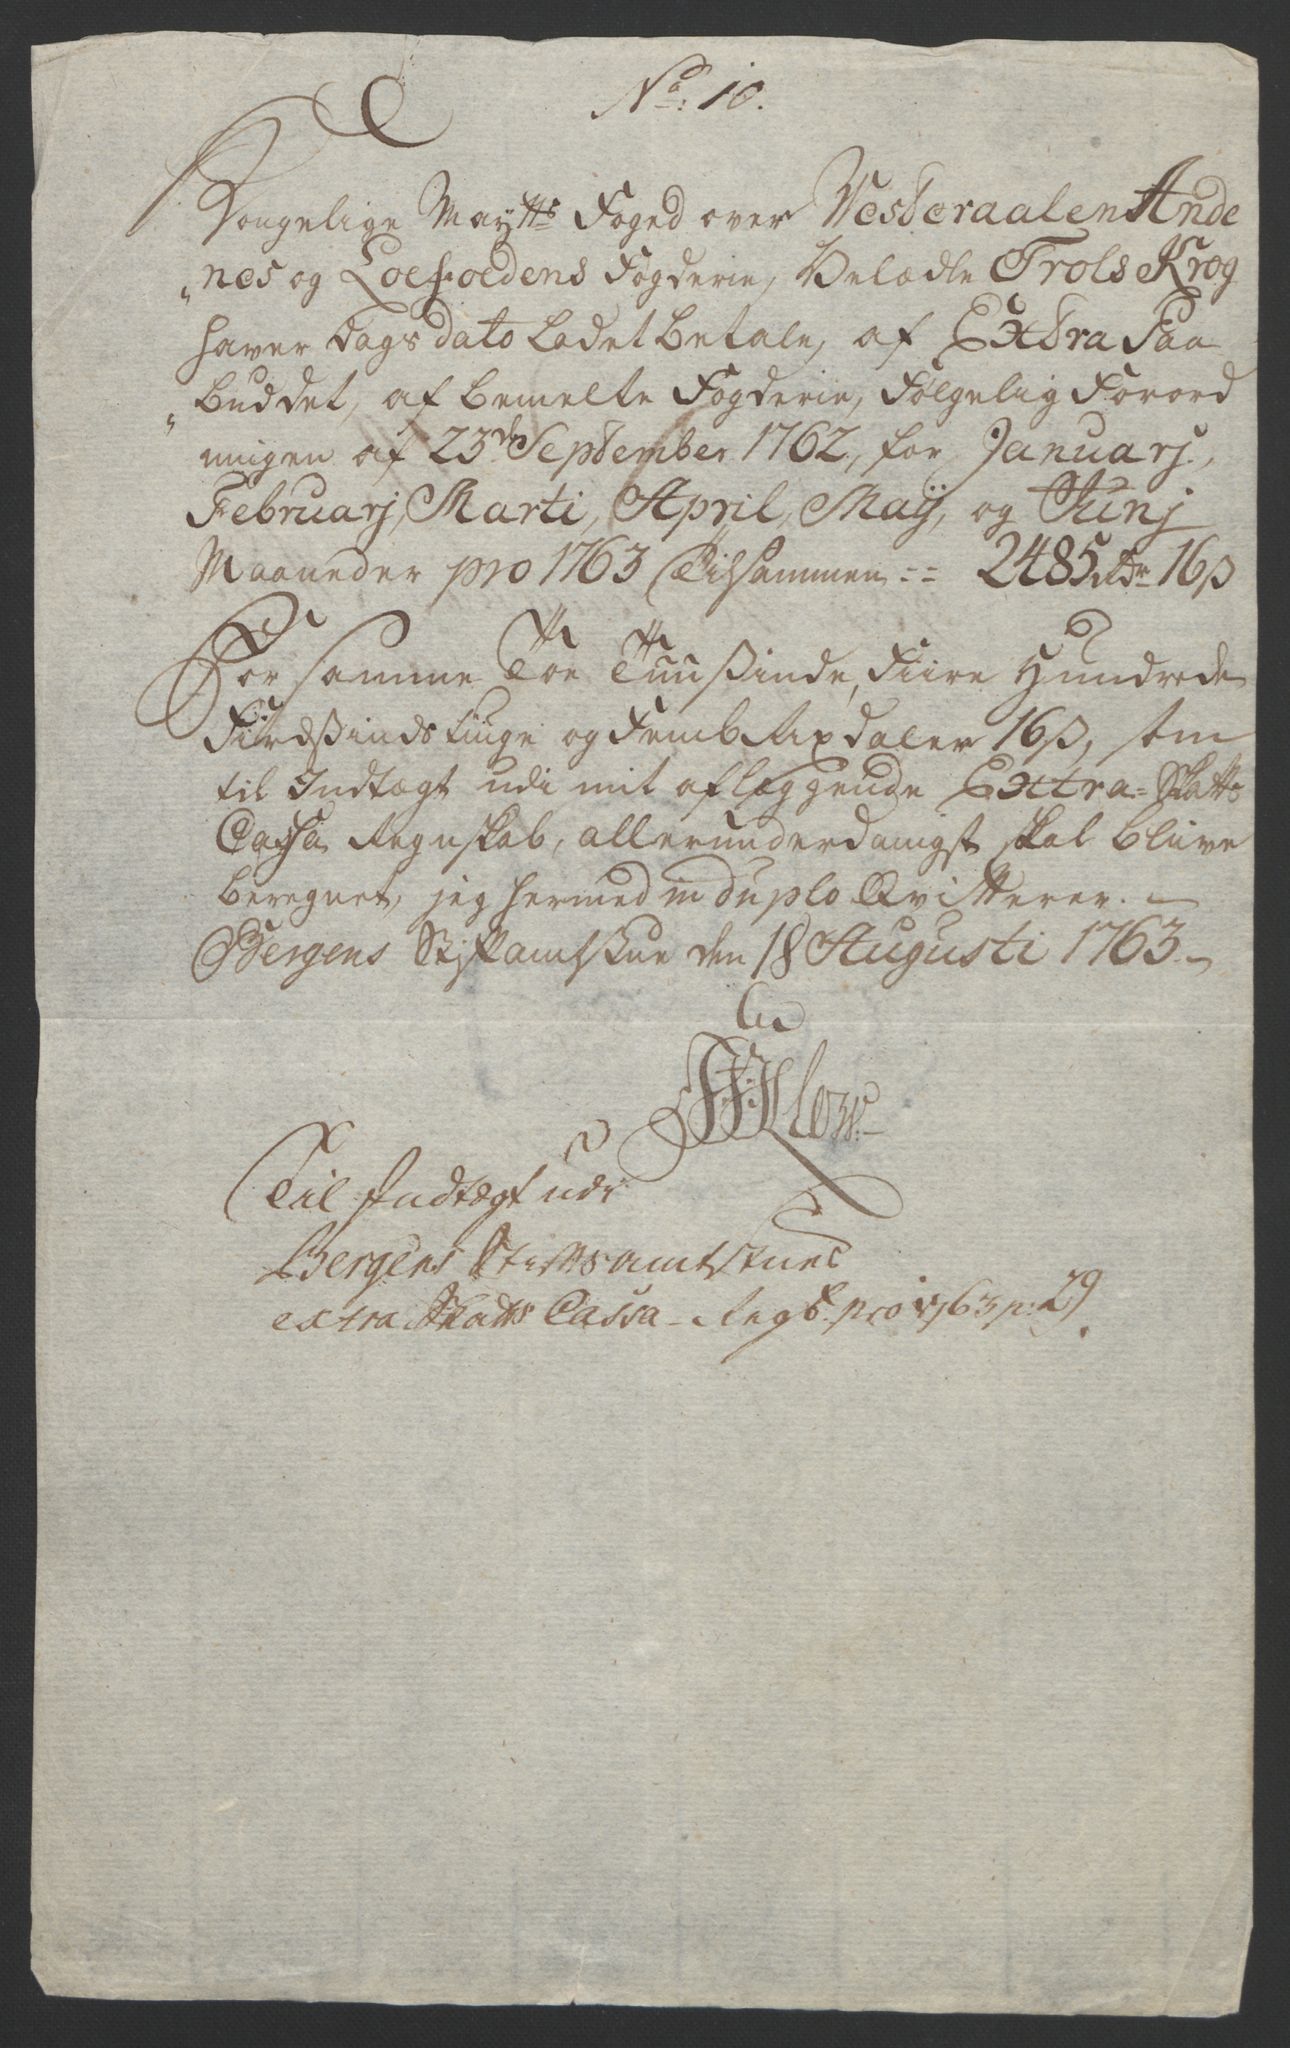 No: 10.
Kongelige Maytts Foged over Vesteraalen Ande
„nes og Loefoedens Fogderie, Velædle Trols Krog
haver Dags dato Ladet Betale, af Extra Paa
„buddet, af bemelte Fogderie, Følgelig Forord
ningen af 23de September 1762, for Januarj,
Februarj, Marti, April, Maÿ, og Junj
Maaneder pro 1763 Tilsammen :: 2485 Rdr 16 ß
For samme Toe Tuusinde, Fiire Hundrede
Fiirdsindstiuge og Femb Rixdaler 16 ß, som
til Indtægt udi mit aflæggende Extra-Skatts
Cassa Regnskab, allerunderdanigst skal blive
beregnet, jeg hermed in duplo Qvitterer. –
Bergens Stiftamtstue den 18 Augusti 1763. –
Til Indtægt udi
Bergens Stiftsamtstues
extra Skatts Cassa-Regsk. pro 1763 p: 29.